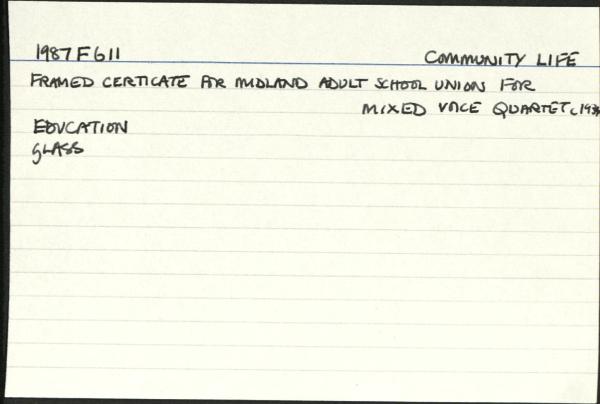 1987F611 COMMUNITY LIFE
FRAMED CERTICATE FOR MIDLAND ADULT SCHOOL UNION FOR
MIXED VOICE QUARTET, c193
EDUCATION
GLASS